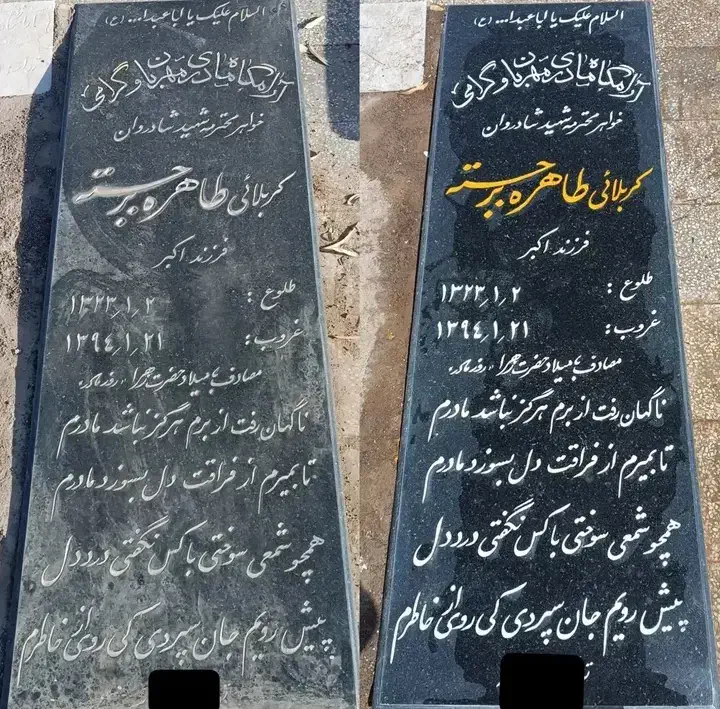 السلام علیک یا اباعبدا... (ع)
آرامگاه مادری مهربان و گرامی
خواهر محترمه شهید شادروان
کربلائی طاهره برجسته
فرزند اکبر
طلوع : ۱۳۲۳٫۱٫۲
غروب : ۱۳۹٤٫۱٫۲۱
مصادف با میلاد حضرت زهرا «روز مادر»
ناگهان رفت از برم هرگز نباشد مادرم
تا بمیرم از فراقت دل بسوزد مادرم
همچو شمعی سوختی با کس نگفتی درد دل
پیش رویم جان سپردی کی روی از خاطرم
السلام علیک یا اباعبدا... (ع)
آرامگاه مادری مهربان و گرامی
خواهر محترمه شهید شادروان
کربلائی طاهره برجسته
فرزند اکبر
طلوع : ۱۳۲۳٫۱٫۲
غروب : ۱۳۹٤٫۱٫۲۱
مصادف با میلاد حضرت زهرا «روز مادر»
ناگهان رفت از برم هرگز نباشد مادرم
تا بمیرم از فراقت دل بسوزد مادرم
همچو شمعی سوختی با کس نگفتی درد دل
پیش رویم جان سپردی کی روی از خاطرم